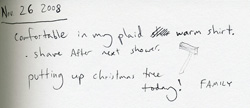 Nov 26 2008
comfortable in my plaid warm shirt.
. shave After next shower.
putting up christmas tree
today!
FAMILY